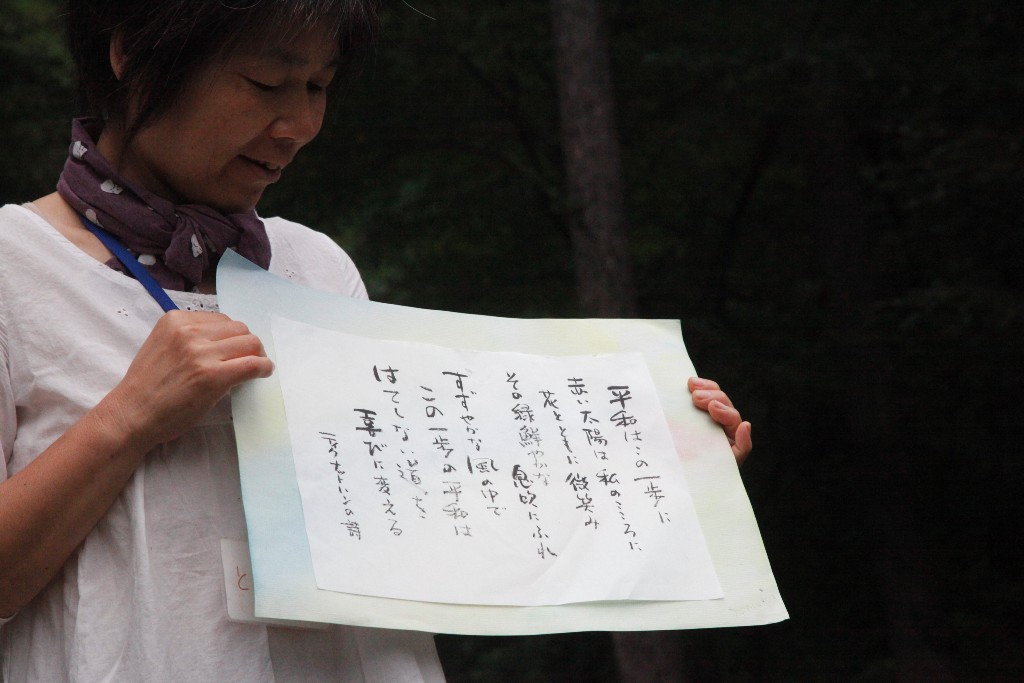 平和はこの一歩に
赤い太陽は私のこころに
花とともに微笑み
その緑鮮やかな息吹にふれ
すずやかな風の中で
この一歩の平和は
はてしない道を
喜びに変える
ニャクナットハンの詩
と